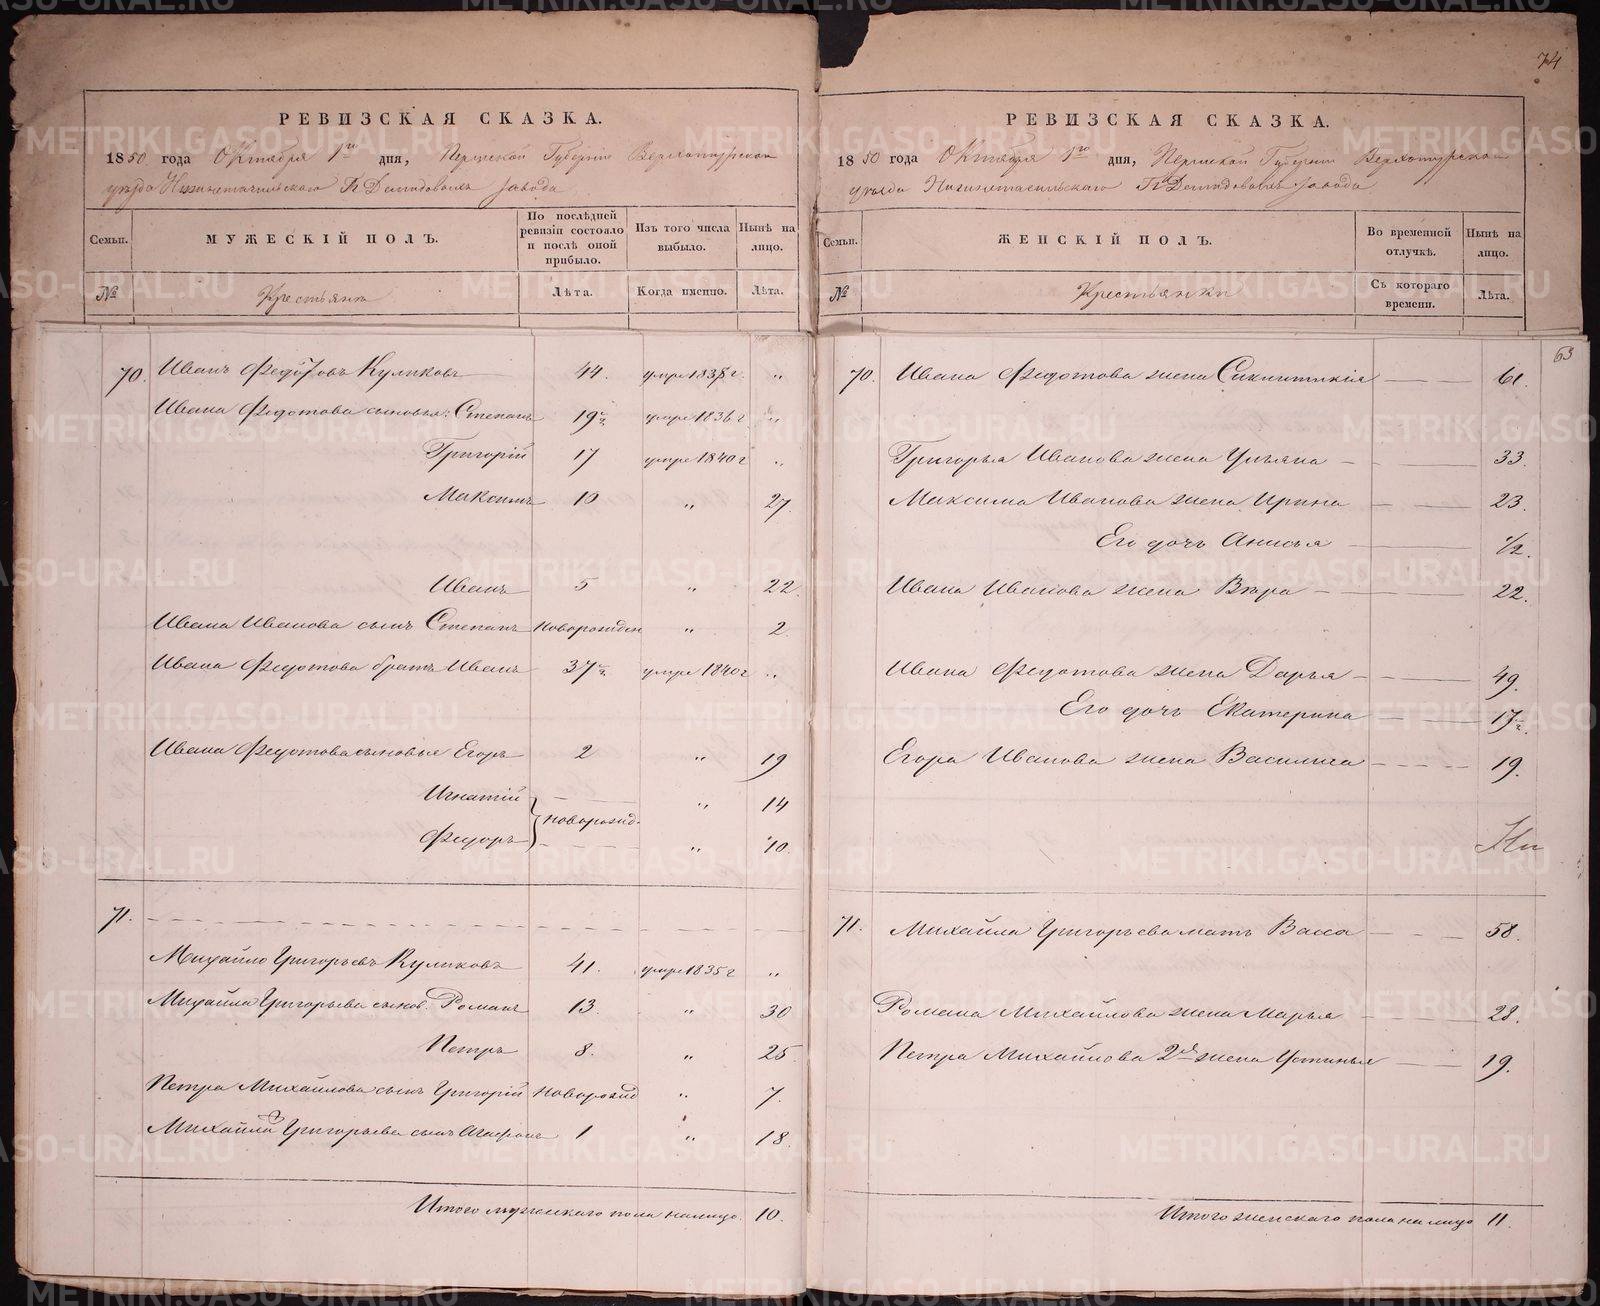 74
РЕВИЗСКАЯ СКАЗКА.
1850 года Октября 1го дня, Пермской Губерніи Верхотурскаго
уѣзда Нижнетагильскаго Гг Демидовыхъ завода
Семьи.
МУЖЕСКІЙ ПОЛЪ.
По послѣдней ревизіи состояло и послѣ оной прибыло.
Изъ того числа выбыло.
Нынѣ на лицо.
№
Крестьяне
Лѣта.
Когда именно.
Лѣта.
70. Иванъ Федотовъ Куликовъ 44. умре 1838 г. „
Ивана Федотова сыновья: Степанъ 19 ½ умре 1836 г „
Григорій 17 умре 1840 г „
Максимъ 10 „ 27.
Иванъ 5 „ 22.
Ивана Иванова сынъ Степанъ новорожден „ 2.
Ивана Федотова братъ Иванъ 37 ½ умре 1840 г „
Ивана Федотова сыновья Егоръ 2 „ 19
Игнатій „ 14
новорожд.
Федоръ „ 10.
71.
Михайло Григорьевъ Куликовъ 41. умре 1835 г „
Михайла Григорьева сынов. Романъ 13. „ 30
Петръ 8. „ 25
Петра Михайлова сынъ Григорій новорожд „ 7.
Михайла Григорьева сынъ Агафонъ 1 „ 18.
Итого мужескаго пола налицо. 10.
РЕВИЗСКАЯ СКАЗКА.
1850 года Октября 1го дня, Пермской Губерніи Верхотурскаго
уѣзда Нижнетагильскаго Гг Демидовыхъ завода
Семьи.
ЖЕНСКІЙ ПОЛЪ.
Во временной отлучкѣ.
Нынѣ на лицо.
№
Крестьянки
Съ котораго времени.
Лѣта.
63
70. Ивана Федотова жена Синклитикія 61.
Григорья Иванова жена Ульяна 33.
Максима Иванова жена Ирина 23.
Его дочь Анисья 1/2.
Ивана Иванова жена Вѣра 22.
Ивана Федотова жена Дарья 49.
Его дочь Екатерина 17 ½.
Егора Иванова жена Василиса 19.
71. Михайла Григорьева мать Васса 58.
Романа Михайлова жена Марья 28.
Петра Михайлова 2я жена Устинья 19.
Итого женскаго пола на лицо 11.
METRIKI.GASO-URAL.RU